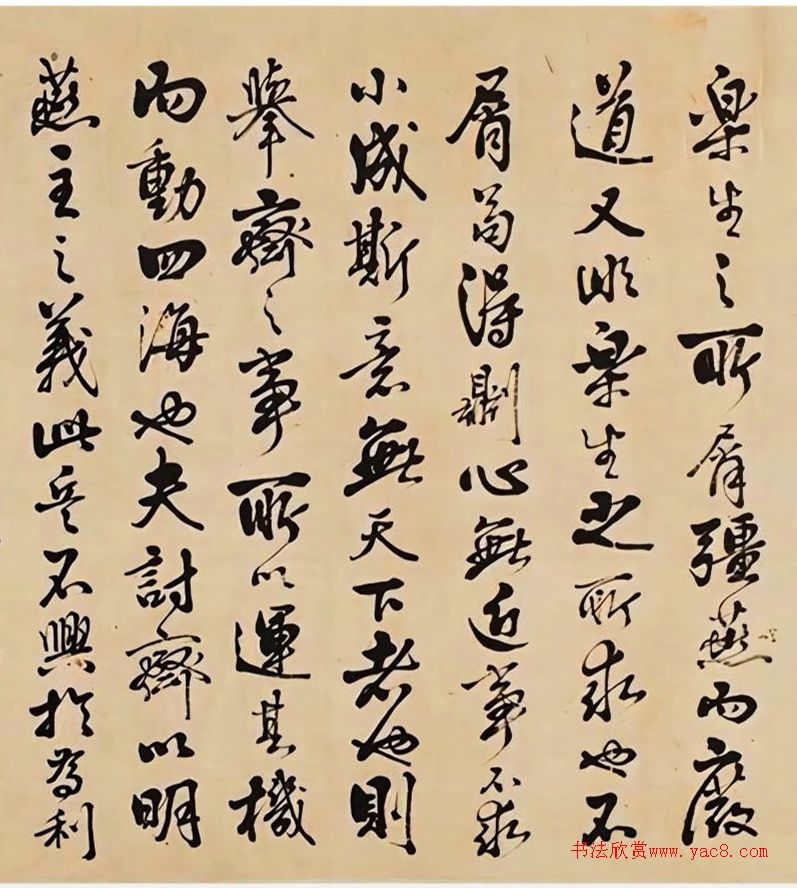 樂生之所屑彊燕而廢
道又非樂生之所求也不
屑苟得則心無近事不求
小成斯意兼天下者也則
舉齊之事所以運其機
而動四海也夫討齊以明
燕主之義此兵不興於為利
书法欣赏www.yac8.com